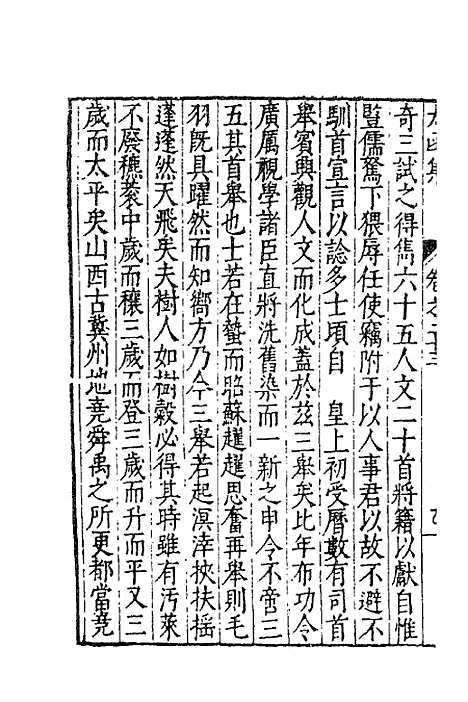 太函集 卷之二十三
奇三試之得雋六十五人文二十首將籍以獻自惟
豎儒駑下猥辱任使竊附于以人事君以故不避不
馴首宣言以諗多士頃自 皇上初受曆數有司首
舉賓興觀人文而化成蓋於茲三舉矣比年布功令
廣厲視學諸臣直將洗舊染而一新之申令不啻三
五其首舉也士若在蟄而昭蘇趯趯思奮再舉則毛
羽既具躍然而知嚮方乃今三舉若起溟涬挾扶搖
蓬蓬然天飛矣夫樹人如樹穀必得其時雖有汚萊
不廢穮蔉中歲而穰三歲而登三歲而升而平又三
歲而太平矣山西古冀州地堯舜禹之所更都當堯